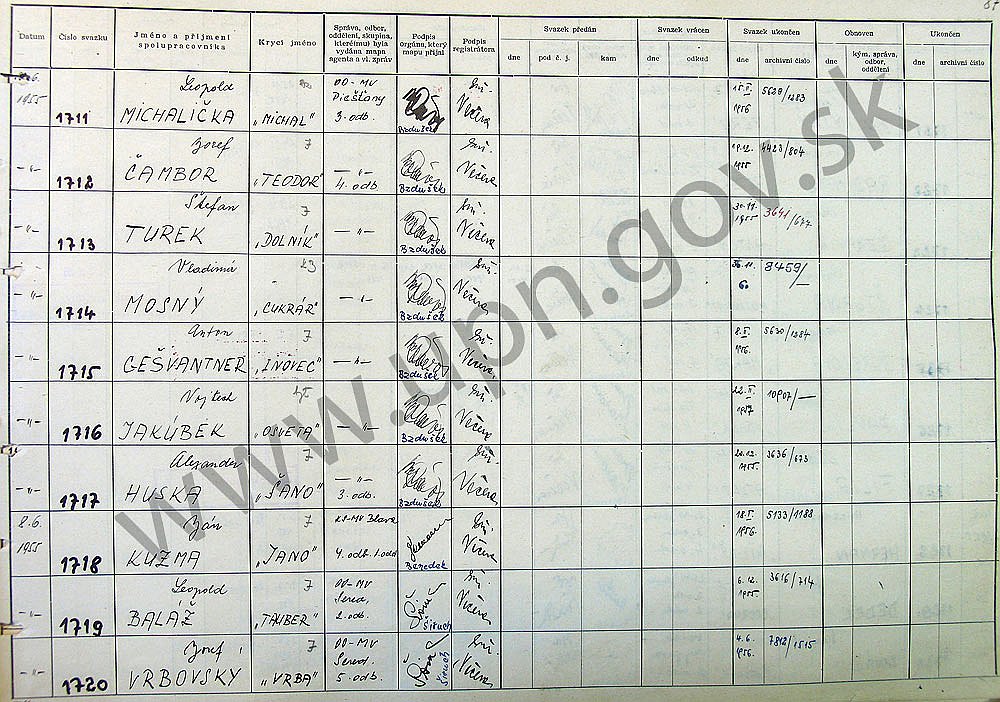 Datum
Číslo svazku
Jméno a příjmení spolupracovníka
Krycí jméno
Správa, odbor, oddělení, skupina, kterému(i) byla vydána mapa agenta a vl. zpráv
Podpis orgánu, který mapu přijal
Podpis registrátora
Svazek předán
dne pod č. j. kam
Svazek vrácen
dne odkud
Svazek ukončen
dne archivní číslo
Obnoven
dne kým, správa, odbor, oddělení
Ukončen
dne archivní číslo
1955 1711 Leopold MICHALIČKA „MICHAL" OO-MV Piešťany 3. odb. Bzdušek Večera 1956 5629/1283
-"- 1712 Jozef ČAMBOR 7 „TEODOR" -"- 4. odb. Bzdušek Večera 19.12. 1955 4423/804
-"- 1713 Štefan TUREK 7 „DOLNÍK" -"- Bzdušek Večera 30.11. 1955 3641/677
-"- 1714 Vladimír MOSNÝ „CUKRÁR" -"- Bzdušek Večera 60 8459/-
-"- 1715 Anton GEŠVANTNER 7 „INOVEC" -"- Bzdušek Večera 8.II. 1956. 5630/1284
-"- 1716 Vojtech JAKÚBEK „OSVETA" -"- Bzdušek Večera 22.II. 1957 10907/-
-"- 1717 Alexander HUSKA 7 „ŠANO" -"- 3. odb. Bzdušek Večera 20.12. 1955. 3636/673
8.6. 1955 1718 Ján KUZMA 7 „JANO" KS-MV Blava 4. odb. 1. odd Večera 18.I. 1956. 5133/1188
-"- 1719 Leopold BALÁŽ 7 „TAUBER" OO-MV Sereď, 2. odb. Široch Večera 6.12. 1955 3616/714
-"- 1720 Jozef VRBOVSKY 7 „VRBA" OO-MV Sereď. 5 odb. Široch Večera 4.6. 1956. 7812/1515
www.upn.gov.sk